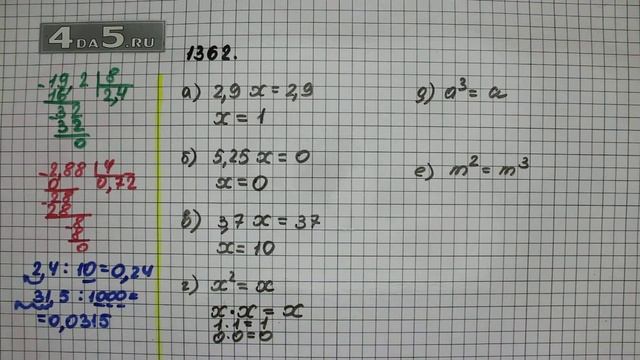 4DA5.RU
1362.
19,2 | 8
16 2,4
32
32
0
2,88 | 4
0 0,72
28
28
8
8
0
2,4 : 10 = 0,24
31,5 : 1000 =
= 0,0315
а) 2,9 x = 2,9
x = 1
б) 5,25 x = 0
x = 0
в) 3,7 x = 37
x = 10
г) x² = x
x · x = x
1 · 1 = 1
0 · 0 = 0
д) a³ = a
е) m² = m³